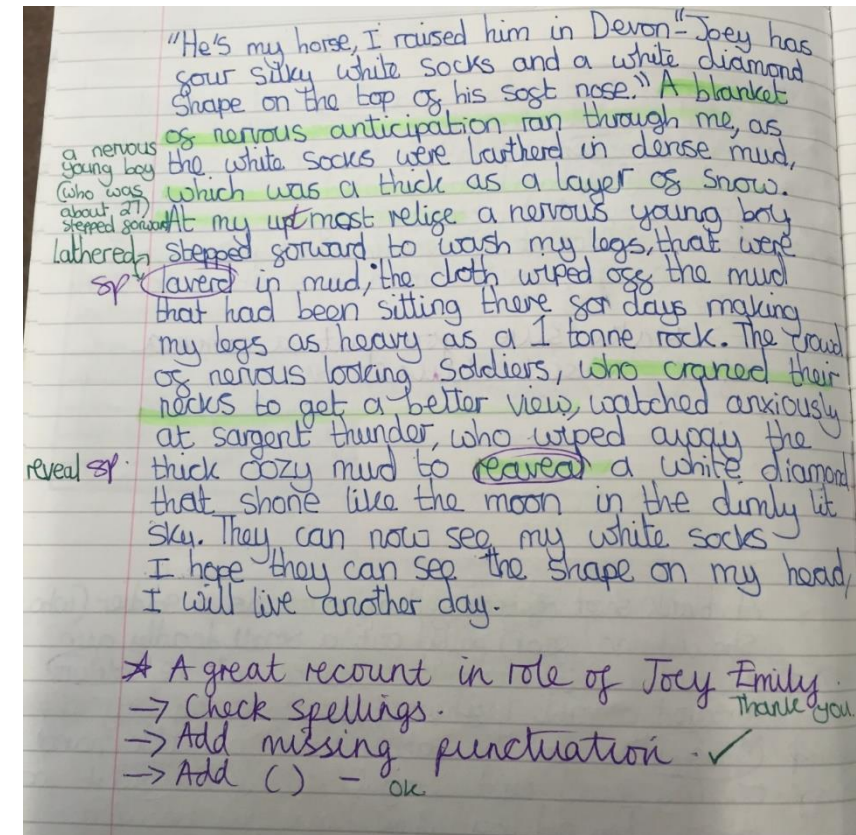 "He's my horse, I raised him in Devon"- Joey has
four silky white socks and a white diamond
shape on the top of his soft nose." A blanket
of nervous anticipation ran through me, as
a nervous
young boy
(who was
about, 27)
stepped forward
the white socks were lartherd in dense mud,
which was a thick as a layer of snow.
At my uptmost relife a nervous young boy
lathered
stepped forward to wash my legs, that were
sp laverd in mud, the cloth wiped off the mud
that had been sitting there for days making
my legs as heavy as a 1 tonne rock. The crowd
of nervous looking soldiers, who craned their
necks to get a better view, watched anxiously
at sargent thunder, who wiped away the
reveal sp. thick oozy mud to reaveal a white diamond
that shone like the moon in the dimly lit
sky. They can now see my white socks
I hope they can see the shape on my head,
I will live another day.
A great recount in role of Joey Emily.
Thank you.
→ Check spellings.
→ Add missing punctuation. ✓
→ Add () - ok